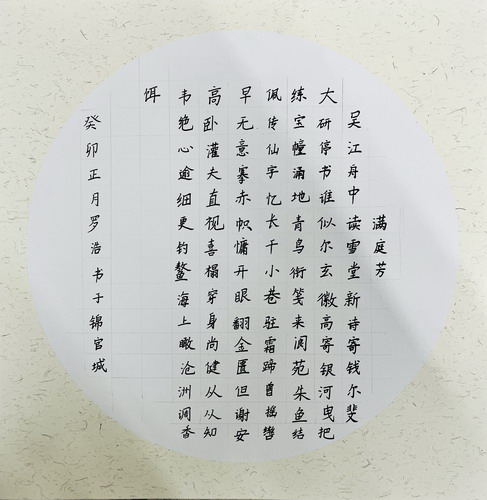 满庭芳
吴江舟中读雪堂新诗寄钱尔斐
大研停书谁似尔玄徽高寄银河曳把
练宝幢涌地青鸟衔笺来阆苑朱鱼结
佩传仙字忆长干小巷驻霜蹄曾摇辔
早无意搴赤帜慵开眼翻金匮但谢安
高卧灌夫直视喜榻穿身尚健从从知
韦绝心逾细更钓鳌海上瞰沧洲调香
饵
癸卯正月罗浩书于锦官城